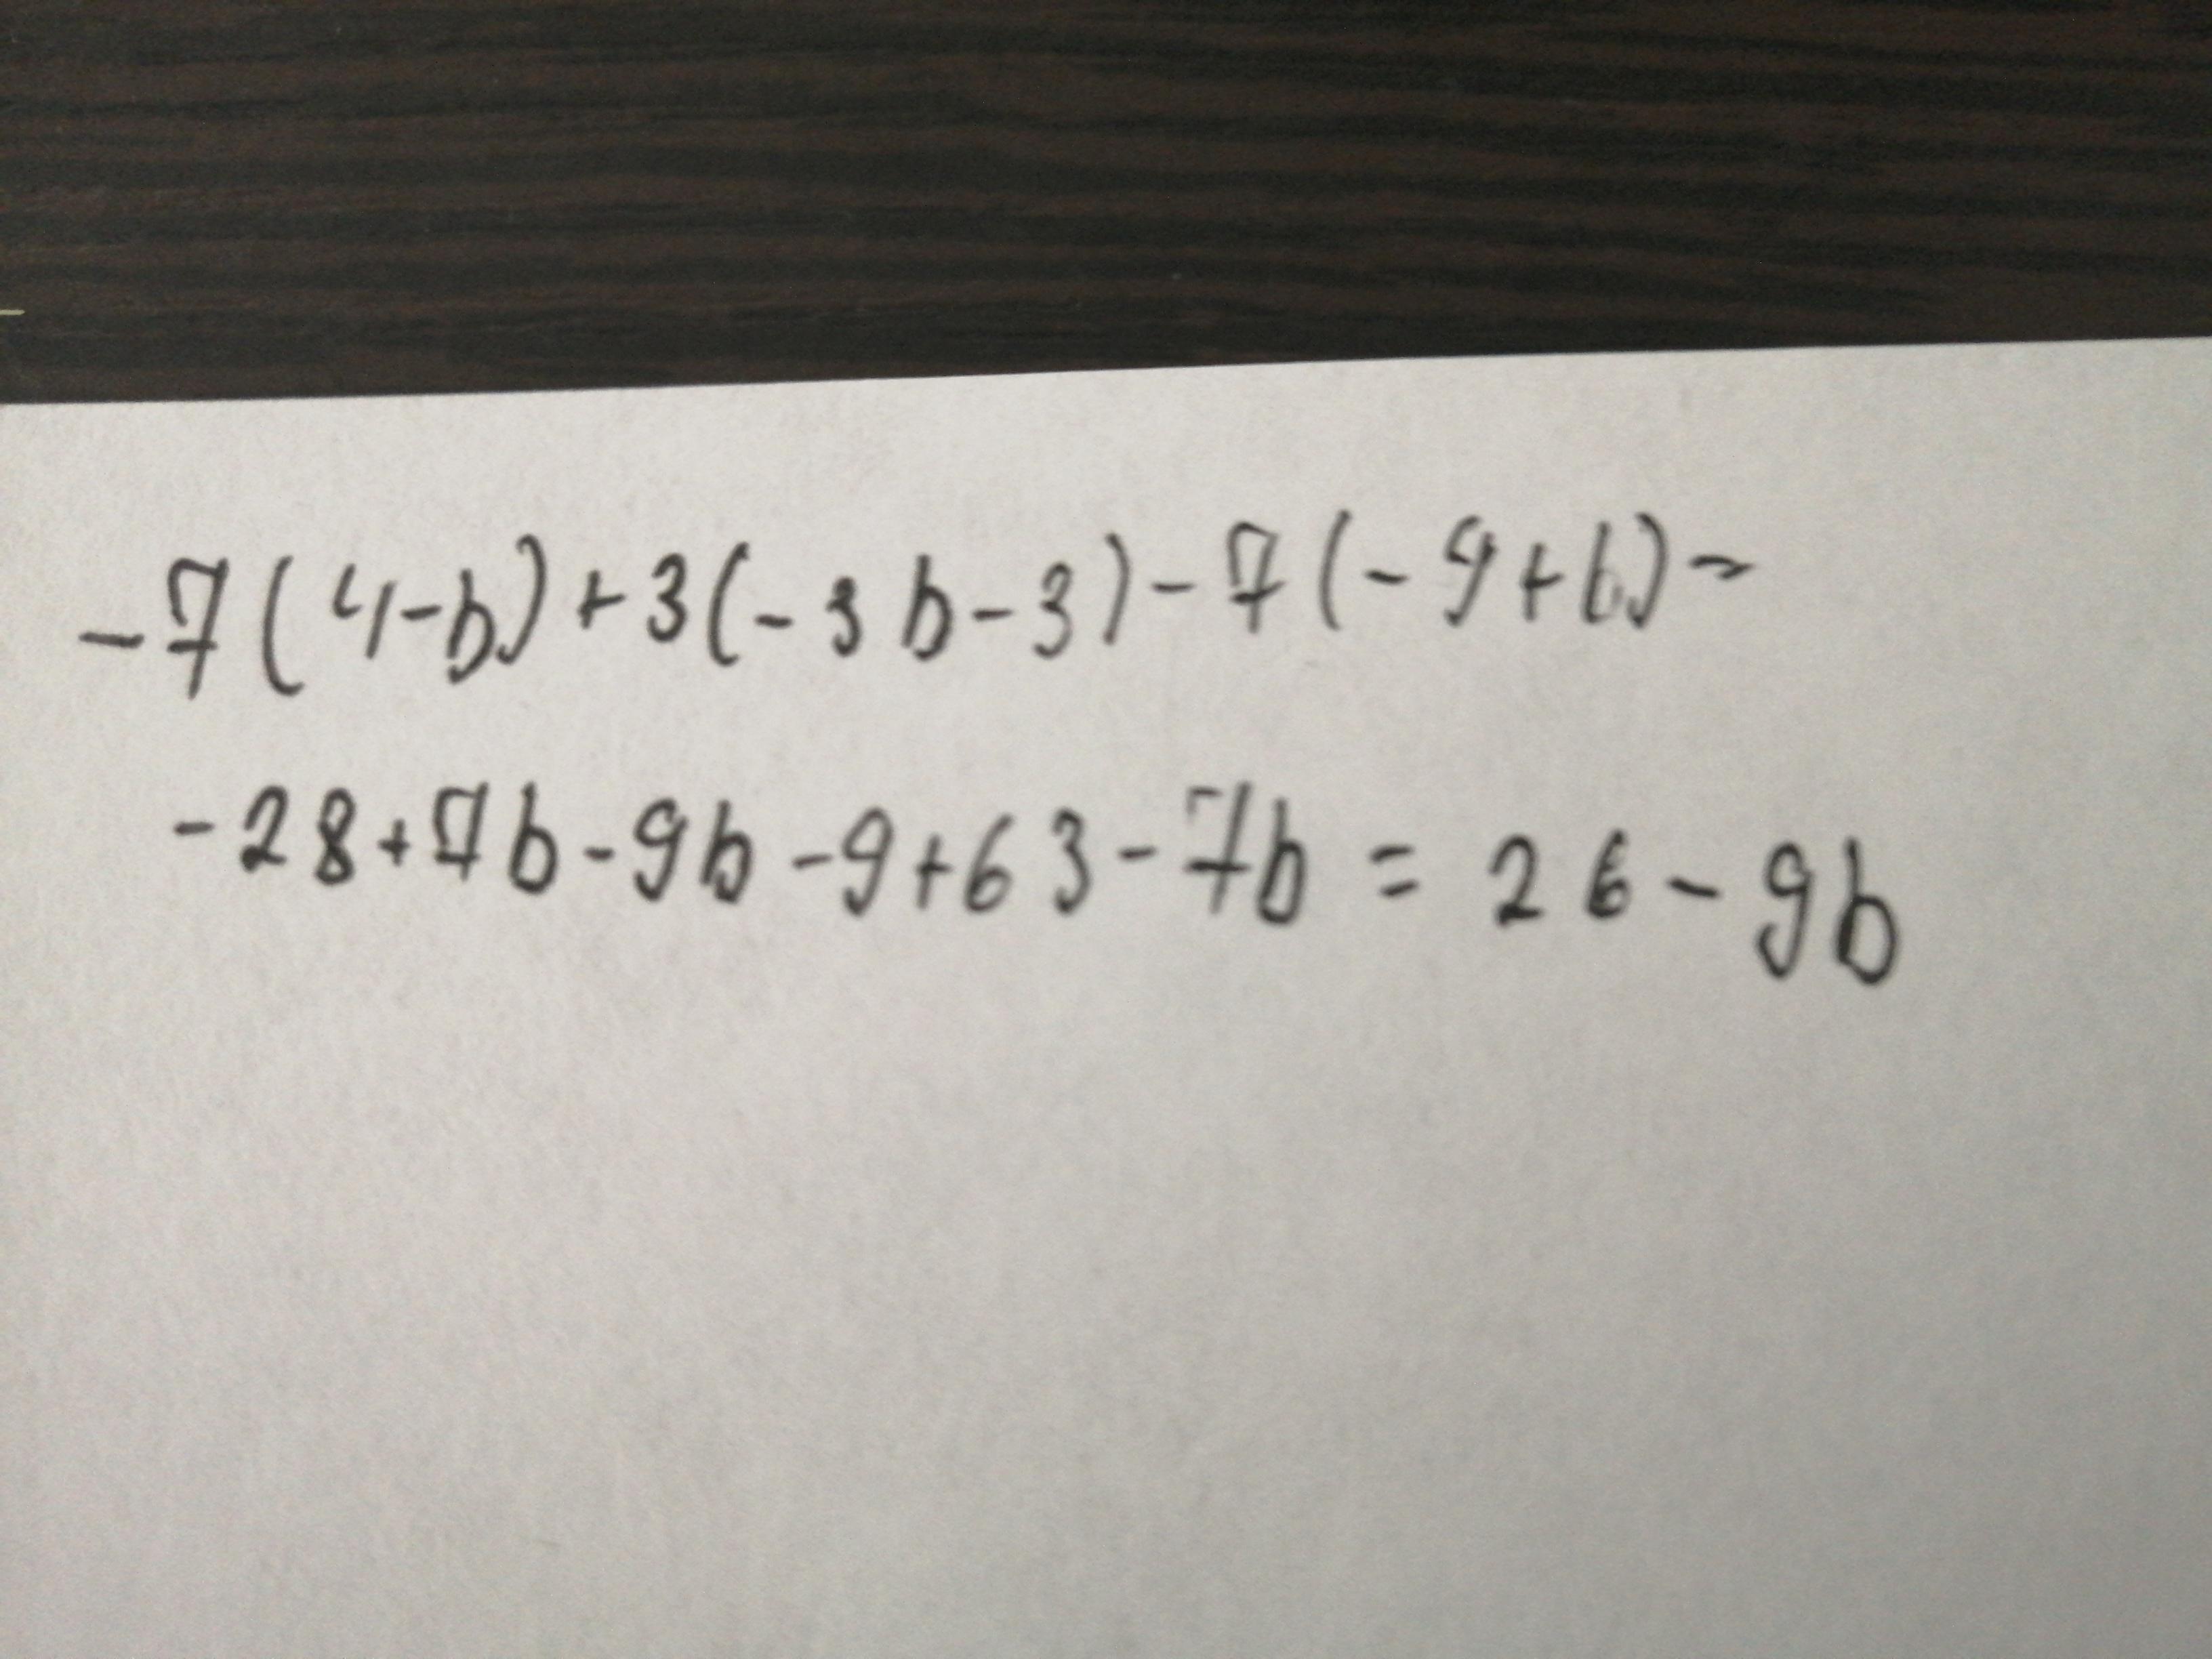 -7(4-b)+3(-3b-3)-7(-9+b)=
-28+7b-9b-9+63-7b=26-9b